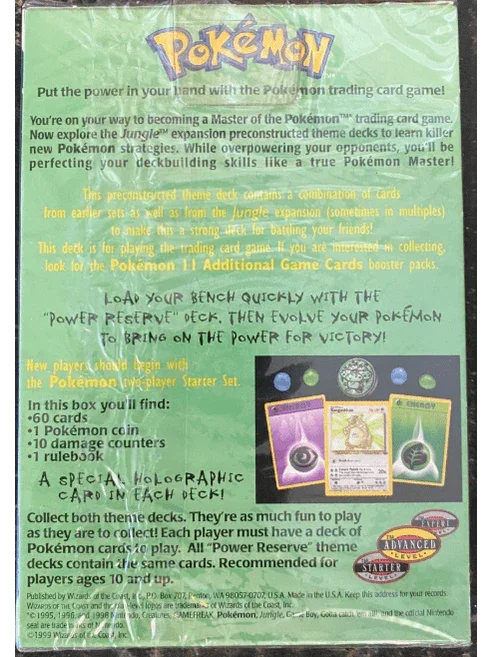 POKéMON
Put the power in your hand with the Pokémon trading card game!
You're on your way to becoming a Master of the Pokémon™ trading card game.
Now explore the Jungle™ expansion preconstructed theme decks to learn killer
new Pokémon strategies. While overpowering your opponents, you'll be
perfecting your deckbuilding skills like a true Pokémon Master!
This preconstructed theme deck contains a combination of cards
from earlier sets as well as from the Jungle expansion (sometimes in multiples)
to make this a strong deck for battling your friends!
This deck is for playing the trading card game. If you are interested in collecting,
look for the Pokémon 11 Additional Game Cards booster packs.
LOAD YOUR BENCH QUICKLY WITH THE
"POWER RESERVE" DECK, THEN EVOLVE YOUR POKÉMON
TO BRING ON THE POWER FOR VICTORY!
New players should begin with
the Pokémon two-player Starter Set.
In this box you'll find:
•60 cards
•1 Pokémon coin
•10 damage counters
•1 rulebook
A SPECIAL HOLOGRAPHIC
CARD IN EACH DECK!
ENERGY
Kangaskhan
ENERGY
Collect both theme decks. They're as much fun to play
as they are to collect! Each player must have a deck of
Pokémon cards to play. All "Power Reserve" theme
decks contain the same cards. Recommended for
players ages 10 and up.
EXPERT
LEVEL
ADVANCED
LEVEL
STARTER
LEVEL
Published by Wizards of the Coast, Inc., P.O. Box 707, Renton, WA 98057-0707, U.S.A. Made in the U.S.A. Keep this address for your records.
Wizards of the Coast and the logos are trademarks of Wizards of the Coast, Inc.
©1995, 1996, and 1998 Nintendo, Creatures, GAMEFREAK. Pokémon, Jungle, Game Boy, Gotta catch 'em all!, and the official Nintendo
seal are trademarks of Nintendo.
©1999 Wizards of the Coast, Inc.